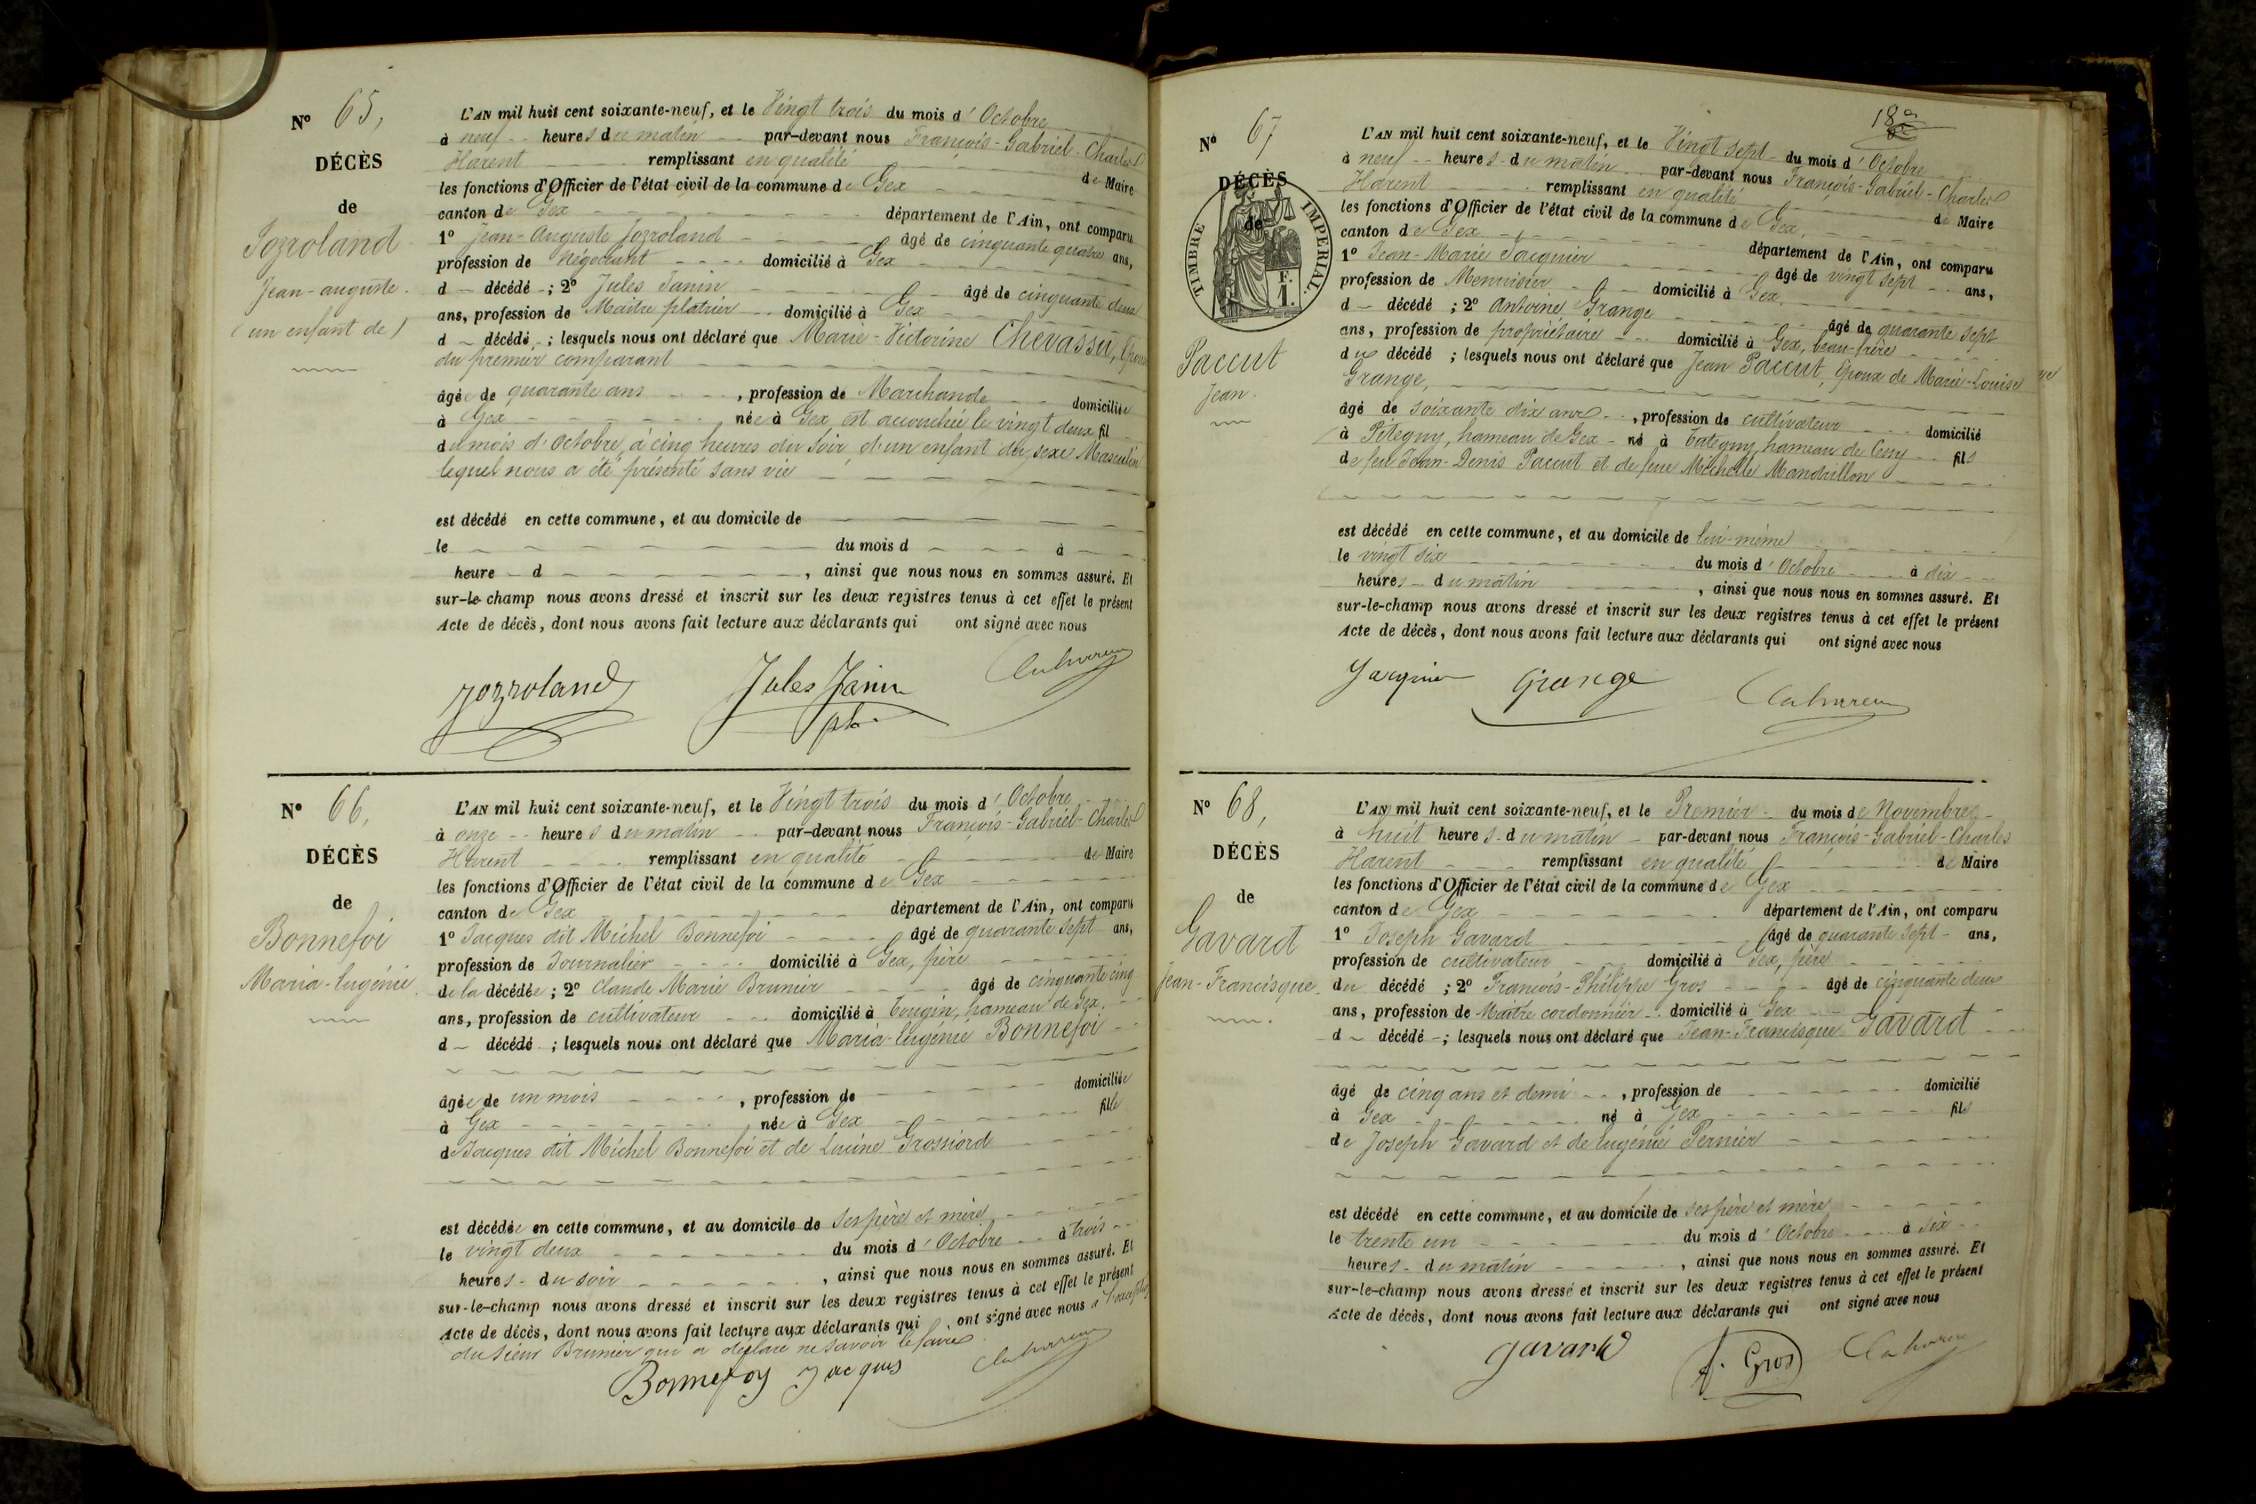 Nº 65,
DÉCÈS
de
Jozroland
Jean-auguste.
(un enfant de)
L'AN mil huit cent soixante-neuf, et le Vingt trois du mois d'Octobre
à neuf heures du matin par-devant nous François-Gabriel-Charles
Harent remplissant en qualité de Maire
les fonctions d'Officier de l'état civil de la commune de Gex
canton de Gex département de l'Ain, ont comparu
1º Jean-Auguste Jozroland âgé de cinquante quatre ans,
profession de Négociant domicilié à Gex
d décédé ; 2º Jules Janin âgé de cinquante deux
ans, profession de Maître platrier domicilié à Gex
d décédé ; lesquels nous ont déclaré que Marie-Victorine Chevassu, épouse
du premier comparant
âgée de quarante ans , profession de Marchande domiciliée
à Gex née à Gex est accouchée le vingt deux fil
du mois d'Octobre, à cinq heures du Soir d'un enfant du sexe Masculin
lequel nous a été présenté sans vie
est décédé en cette commune, et au domicile de
le du mois d à
heure d , ainsi que nous nous en sommes assuré. Et
sur-le-champ nous avons dressé et inscrit sur les deux registres tenus à cet effet le présent
Acte de décès, dont nous avons fait lecture aux déclarants qui ont signé avec nous
Jozroland Jules Janin
Nº 66,
DÉCÈS
de
Bonnefoi
Maria-Eugénie
L'AN mil huit cent soixante-neuf, et le Vingt trois du mois d'Octobre
à onze heures du matin par-devant nous François-Gabriel-Charles
Harent remplissant en qualité de Maire
les fonctions d'Officier de l'état civil de la commune de Gex
canton de Gex département de l'Ain, ont comparu
1º Jacques dit Michel Bonnefoi âgé de quarante sept ans,
profession de Journalier domicilié à Gex, père
de la décédée ; 2º Claude Marie Brunier âgé de cinquante cinq
ans, profession de cultivateur domicilié à Tougin, hameau de Gex,
d décédé ; lesquels nous ont déclaré que Maria-Eugénie Bonnefoi
âgée de un mois , profession de domiciliée
à Gex née à Gex fille
de Jacques dit Michel Bonnefoi et de Lucine Grossiord
est décédée en cette commune, et au domicile de ses père et mère
le vingt deux du mois d'Octobre à trois
heures du soir , ainsi que nous nous en sommes assuré. Et
sur-le-champ nous avons dressé et inscrit sur les deux registres tenus à cet effet le présent
Acte de décès, dont nous avons fait lecture aux déclarants qui ont signé avec nous à l'exception
du sieur Brunier qui a déclaré ne savoir le faire
Bonnefoy Jacques
Nº 67
DÉCÈS
de
TIMBRE IMPERIAL
F.
1.
Paccut
Jean.
18e
L'AN mil huit cent soixante-neuf, et le Vingt sept du mois d'Octobre
à neuf heures du matin par-devant nous François-Gabriel-Charles
Harent remplissant en qualité de Maire
les fonctions d'Officier de l'état civil de la commune de Gex,
canton de Gex département de l'Ain, ont comparu
1º Jean-Marie Jacquier âgé de vingt sept ans,
profession de Menuisier domicilié à Gex,
d décédé ; 2º Antoine Grange âgé de quarante sept
ans, profession de propriétaire domicilié à Gex, beau-frère
du décédé ; lesquels nous ont déclaré que Jean Paccut, époux de Marie-Louise
Grange,
âgé de soixante dix ans , profession de cultivateur domicilié
à Pitegny, hameau de Gex né à Tutegny, hameau de Cessy fils
de feu Jean-Denis Paccut et de feue Michelle Mandrillon
est décédé en cette commune, et au domicile de lui-même
le vingt six du mois d'Octobre à dix
heures du matin , ainsi que nous nous en sommes assuré. Et
sur-le-champ nous avons dressé et inscrit sur les deux registres tenus à cet effet le présent
Acte de décès, dont nous avons fait lecture aux déclarants qui ont signé avec nous
Jacquier Grange
Nº 68,
DÉCÈS
de
Gavard
Jean-Francisque
L'AN mil huit cent soixante-neuf, et le Premier du mois de Novembre
à huit heures du matin par-devant nous François-Gabriel-Charles
Harent remplissant en qualité de Maire
les fonctions d'Officier de l'état civil de la commune de Gex
canton de Gex département de l'Ain, ont comparu
1º Joseph Gavard âgé de quarante sept ans,
profession de cultivateur domicilié à Gex, père
du décédé ; 2º François-Philippe Gros âgé de cinquante deux
ans, profession de Maître cordonnier domicilié à Gex
d décédé ; lesquels nous ont déclaré que Jean-Francisque Gavard
âgé de cinq ans et demi , profession de domicilié
à Gex né à Gex fils
de Joseph Gavard et de Eugénie Pernier
est décédé en cette commune, et au domicile de ses père et mère
le trente un du mois d'Octobre à six
heures du matin , ainsi que nous nous en sommes assuré. Et
sur-le-champ nous avons dressé et inscrit sur les deux registres tenus à cet effet le présent
Acte de décès, dont nous avons fait lecture aux déclarants qui ont signé avec nous
Gavard f. Gros